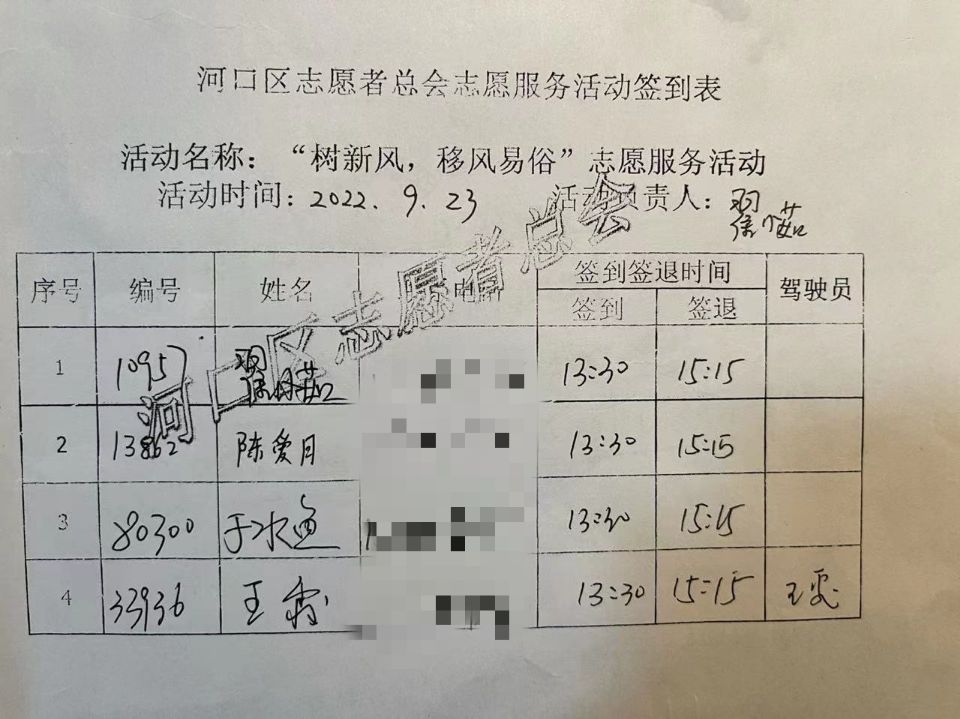 河口区志愿者总会志愿服务活动签到表
活动名称：“树新风，移风易俗”志愿服务活动
活动时间：2022.9.23 活动负责人：
序号 编号 姓名 电话 签到签退时间 驾驶员
签到 签退
1 10957 13:30 15:15
2 13862 陈爱月 13:30 15:15
3 80300 于冰鱼 13:30 15:15
4 33936 王 13:30 15:15 王
河口区志愿者总会